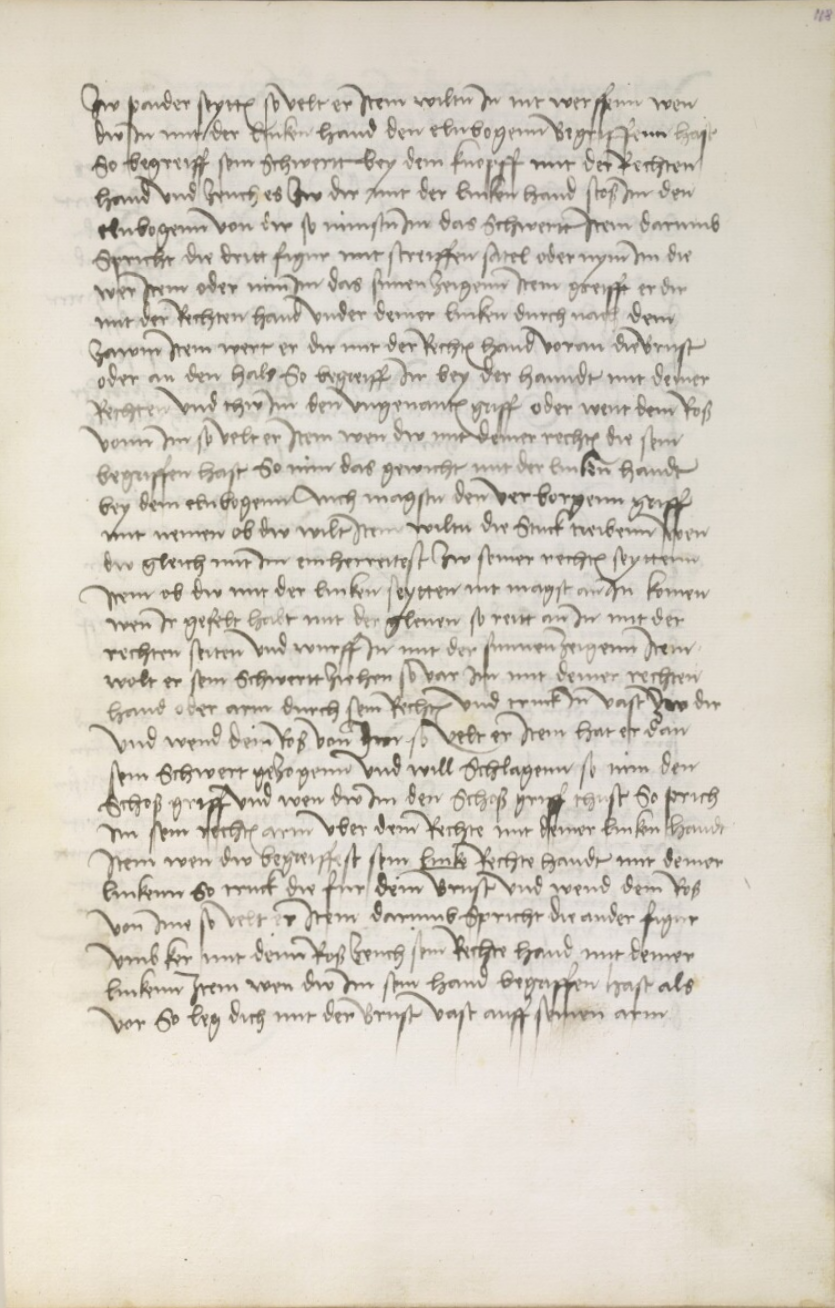 118
Zw paider seyttn so velt er Item wiltu In nit werffenn wen
dw In mit der linken hand den elnbogenn Begriffenn hast
So begreiff sein Schwertt bey dem knopff mit der Rechten
hand vnd Zeuch es Zw dir mit der linken hand stos Im den
elnbogenn von dir so nimstu Im das Schwertt Item darumb
Spricht die dritt figur mit streiffen satel oder nym Im die
wer Item oder nim Im das sunen Zeigenn Item greifft er dir
mit der Rechten hand vnder deiner linken durch nach dem
Zawm Item wert er dir mit der Rechtn hand voran die Brust
oder an den hals So begreiff Ir bey der hanndt mit deiner
Rechten vnd thw Im den vngenantn griff oder went dein Ros
vonn Im so velt er Item wen dw mit deiner rechtn die sein
begriffen hast So nim das gewicht mit der linken handt
bey dem elnbogenn Auch magstu den verborgenn griff
mit nemen ob dw wilt Item wiltu die Stuck treibenn wen
dw gleich mit Im einherreitest Zw seiner rechtn seyttenn
Item ob dw mit der linken seytten nit magst an In komen
wen Ir gefelt habt mit der glenen so reitt an In mit der
rechten seiten vnd wurff In mit der sunnen Zeigenn Item
wolt er sein Schwertt Ziehen so var Im mit deiner rechten
hand oder arm durch sein Rechtn vnd truck In vast Zw dir
vnd wend dein Ros von Im so velt er Item hat er dan
sein Schwert geZogenn vnd will Schlagenn so nim den
Schos griff vnd wen dw Im den Schos griff thust So prich
Im sein rechtn arm vber dein Rechte mit deiner linken handt
Item wen dw begreiffest sein linke Rechte handt mit deiner
linkenn So truck die fur dein Brust vnd wend dein Ros
von Ime so velt er Item darumb Spricht die ander figur
vmb ker mit deinn Ros Zeuch sein Rechte hand mit deiner
linkenn Item wen dw Im sein hand begriffen hast als
vor So leg dich mit der Brust vast auff seinen arm